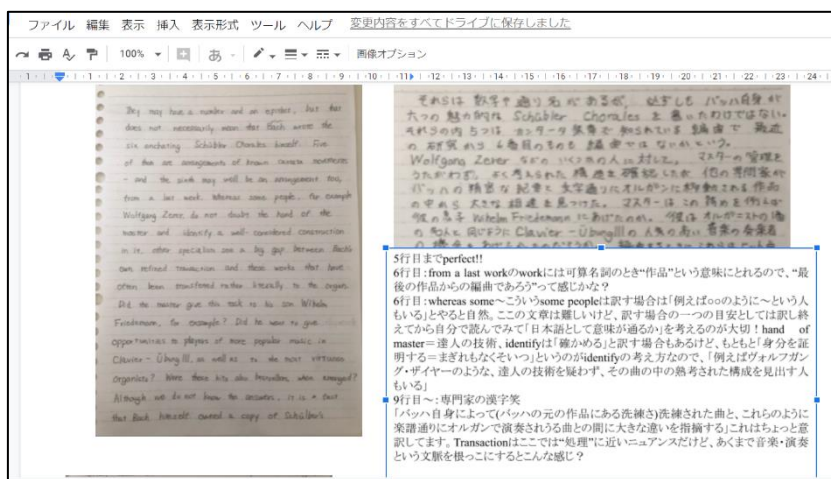 ファイル 編集 表示 挿入 表示形式 ツール ヘルプ 変更内容をすべてドライブに保存しました
100% あ 画像オプション
They may have a number and an epithet, but that
does not necessarily mean that Bach wrote the
six enchanting Schübler Chorales himself. Five
of them are arrangements of known cantata movements
- and the sixth may well be an arrangement too,
from a last work. Whereas some people, for example
Wolfgang Zerer, do not doubt the hand of the
master and identify a well-considered construction
in it, other specialists see a big gap between Bach's
own refined transaction and these works that have
often been transferred rather literally to the organ.
Did the master give this task to his son Wilhelm
Friedemann, for example? Did he want to give
opportunities to players of more popular music in
Clavier-Übung III, as well as to the most virtuoso
organists? Were these hits also bestsellers when arranged?
Although we do not know the answers, it is a fact
that Bach himself owned a copy of Schübler's
それらは数字や通り名があるが、必ずしもバッハ自身が
六つの魅力的な Schübler Chorales を書いたわけではない。
それらの内5つはカンタータ楽章で知られている編曲で 最近
の研究から 6番目のものも編曲ではないかという。
Wolfgang Zerer などのいくつかの人に対して、マスターの管理を
うたがわず、よく考えられた構造を確認したが 他の専門家が
バッハの精密な記象と文字通りにオルガンに移動される作品
の中から 大きな相違を見つけた。マスターはこの務めを例えば
彼の息子 Wilhelm Friedemann にあげたのか。彼はオルガニストの
Clavier-Übung III の人気の高い音楽の奏者
5行目までperfect!!
6行目:from a last workのworkには可算名詞のとき“作品”という意味にとれるので、“最
後の作品からの編曲であろう”って感じかな?
6行目:whereas some~こういうsome peopleは訳す場合は「例えば○○のように~という人
もいる」とやると自然。ここの文章は難しいけど、訳す場合の一つの目安としては訳し終
えてから自分で読んでみて「日本語として意味が通るか」を考えるのが大切!hand of
master=達人の技術、identifyは「確かめる」と訳す場合もあるけど、もともと「身分を証
明する=まぎれもなくそいつ」というのがidentifyの考え方なので、「例えばヴォルフガン
グ・ザイヤーのような、達人の技術を疑わず、その曲の中の熟考された構成を見出す人
もいる」
9行目~:専門家の漢字笑
「バッハ自身によって(バッハの元の作品にある洗練さ)洗練された曲と、これらのように
楽譜通りにオルガンで演奏されうる曲との間に大きな違いを指摘する」これはちょっと意
訳してます。Transactionはここでは“処理”に近いニュアンスだけど、あくまで音楽・演奏
という文脈を根っこにするとこんな感じ?